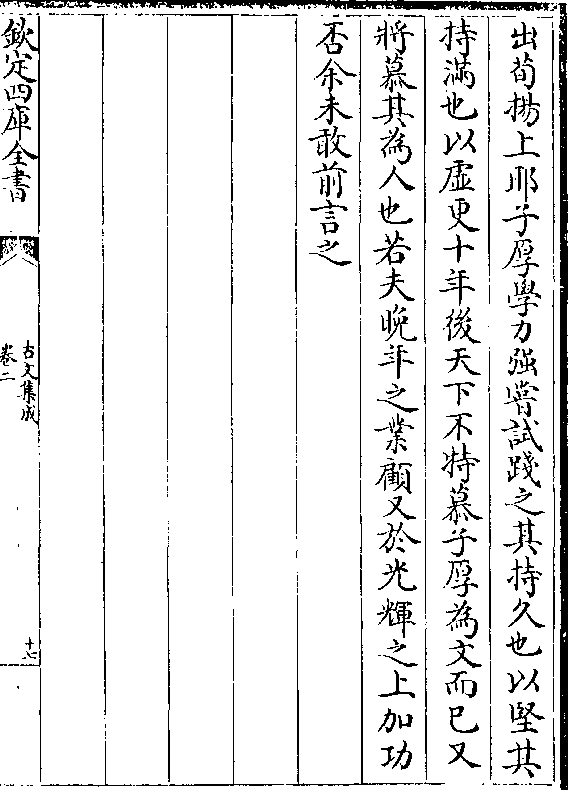 出荀揚上耶子厚學力強嘗試踐之其持久也以堅其
持滿也以虛更十年後天下不特慕子厚為文而已又
將慕其為人也若夫晚年之業顧又於光輝之上加功
否余未敢前言之
欽定四庫全書
古文集成
卷二
十七